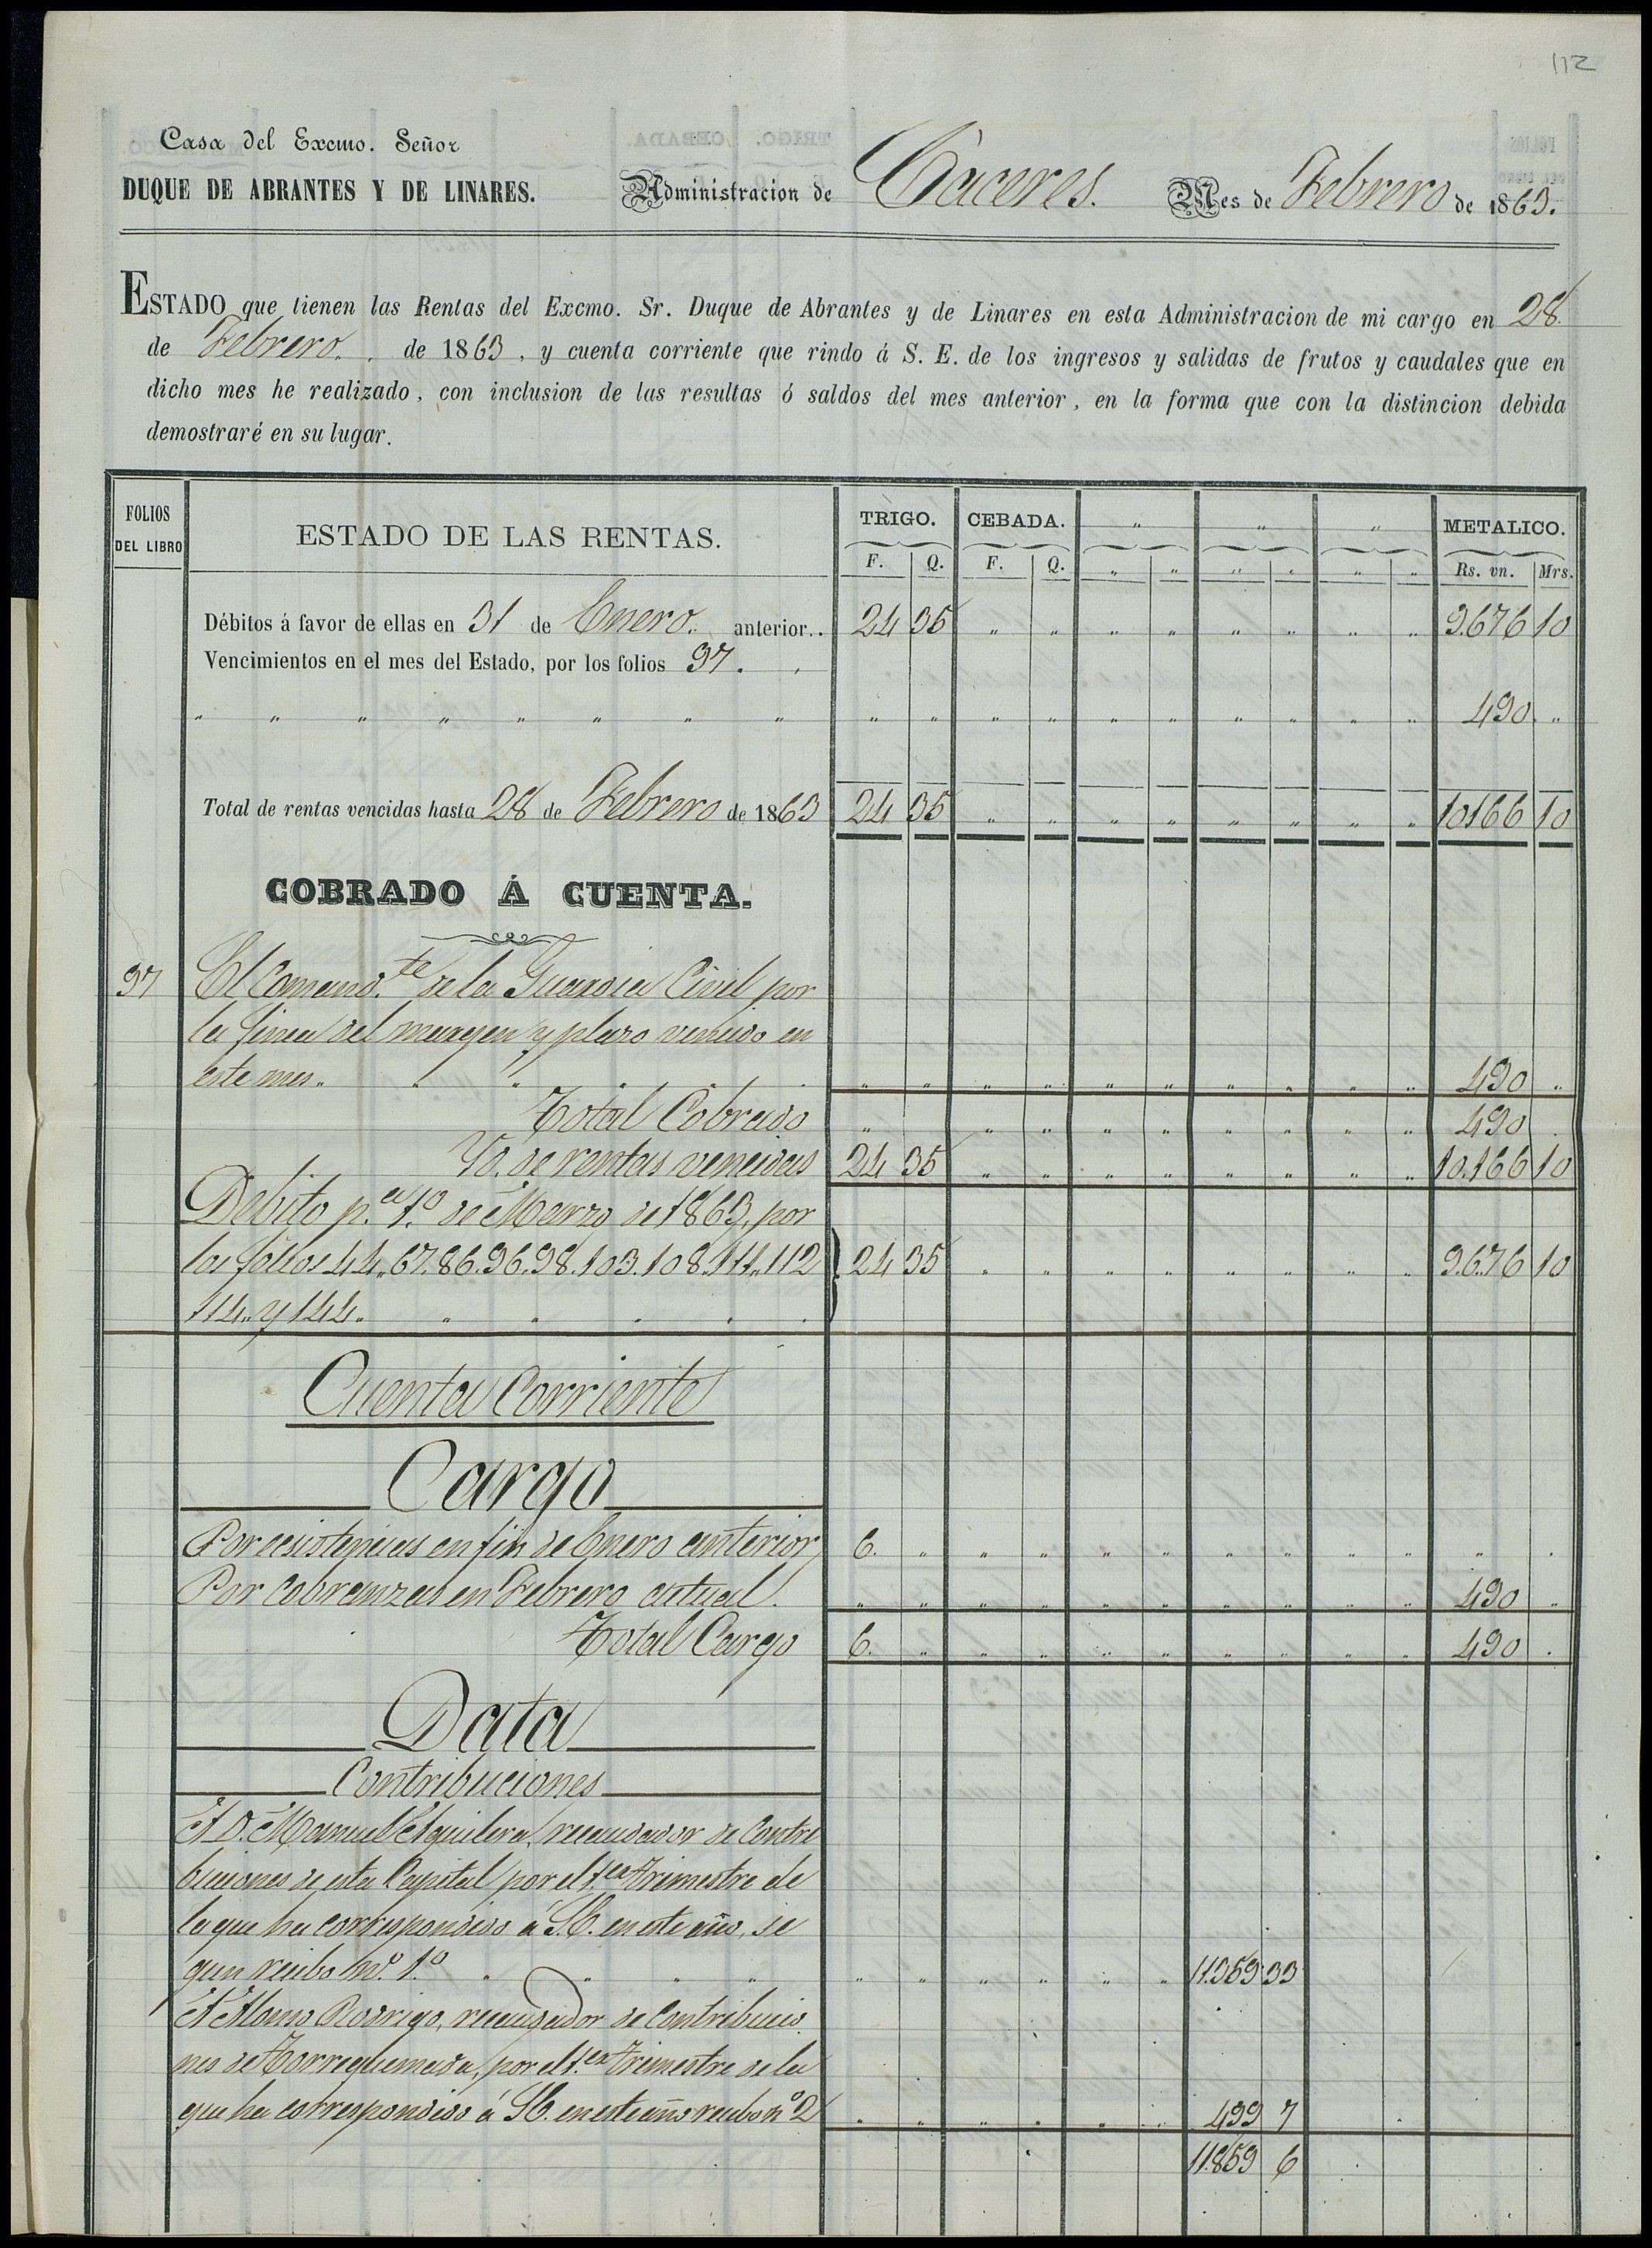 112
Casa del Excmo. Señor
DUQUE DE ABRANTES Y DE LINARES.
Administracion de Cáceres. Mes de Febrero de 1863.
ESTADO que tienen las Rentas del Excmo. Sr. Duque de Abrantes y de Linares en esta Administracion de mi cargo en 28
de Febrero. de 1863, y cuenta corriente que rindo á S. E. de los ingresos y salidas de frutos y caudales que en
dicho mes he realizado, con inclusion de las resultas ó saldos del mes anterior, en la forma que con la distincion debida
demostraré en su lugar.
FOLIOS DEL LIBRO ESTADO DE LAS RENTAS. TRIGO. CEBADA. " " " METALICO.
F. Q. F. Q. " " " " " " Rs. vn. Mrs.
Débitos á favor de ellas en 31 de Enero. anterior.. 24 35 " " " " " " " " 9.676 10
Vencimientos en el mes del Estado, por los folios 97.
" " " " " " " " " " " " " " " " " " 490 "
Total de rentas vencidas hasta 28 de Febrero de 1863 24 35 " " " " " " " " 10166 10
COBRADO Á CUENTA.
97 El Comand.te de la Guardia Civil por
la finca del margen y plazo vencido en
este mes. " " " " " " " " " " 490 "
Total Cobrado " " " " " " " " " 490 .
Yd. de rentas vencidas 24 35 " " " " " " " " 10.166 10
Debito p.a 1.o de Marzo de 1863, por
los folios 44. 67. 86. 96. 98. 103. 108. 111. 112 24 35 " " " " " " " " 9.676 10
114. y 144.
Cuenta Corriente
Cargo
Por ecsistencias en fin de Enero anterior 6. " " " " " " " " " " .
Por cobranzas en Febrero actual. " " " " " " " " " " 490 "
Total Cargo 6. " " " " " " " " " 490 .
Data
Contribuciones
A D. Manuel Aguilera, recaudador de Contri
buciones de esta Capital, por el 1.er Trimestre de
lo que ha correspondido á S.E. en este año, se
gun recibo n.o 1.o " " " " " " 11.359 33
A Alonso Rodrigo, recaudador de Contribucio
nes de Torrequemada, por el 1.er Trimestre de la
que ha correspondido á S.E. en este año recibo n.o 2 " " " " " " 499 7
11.859 6